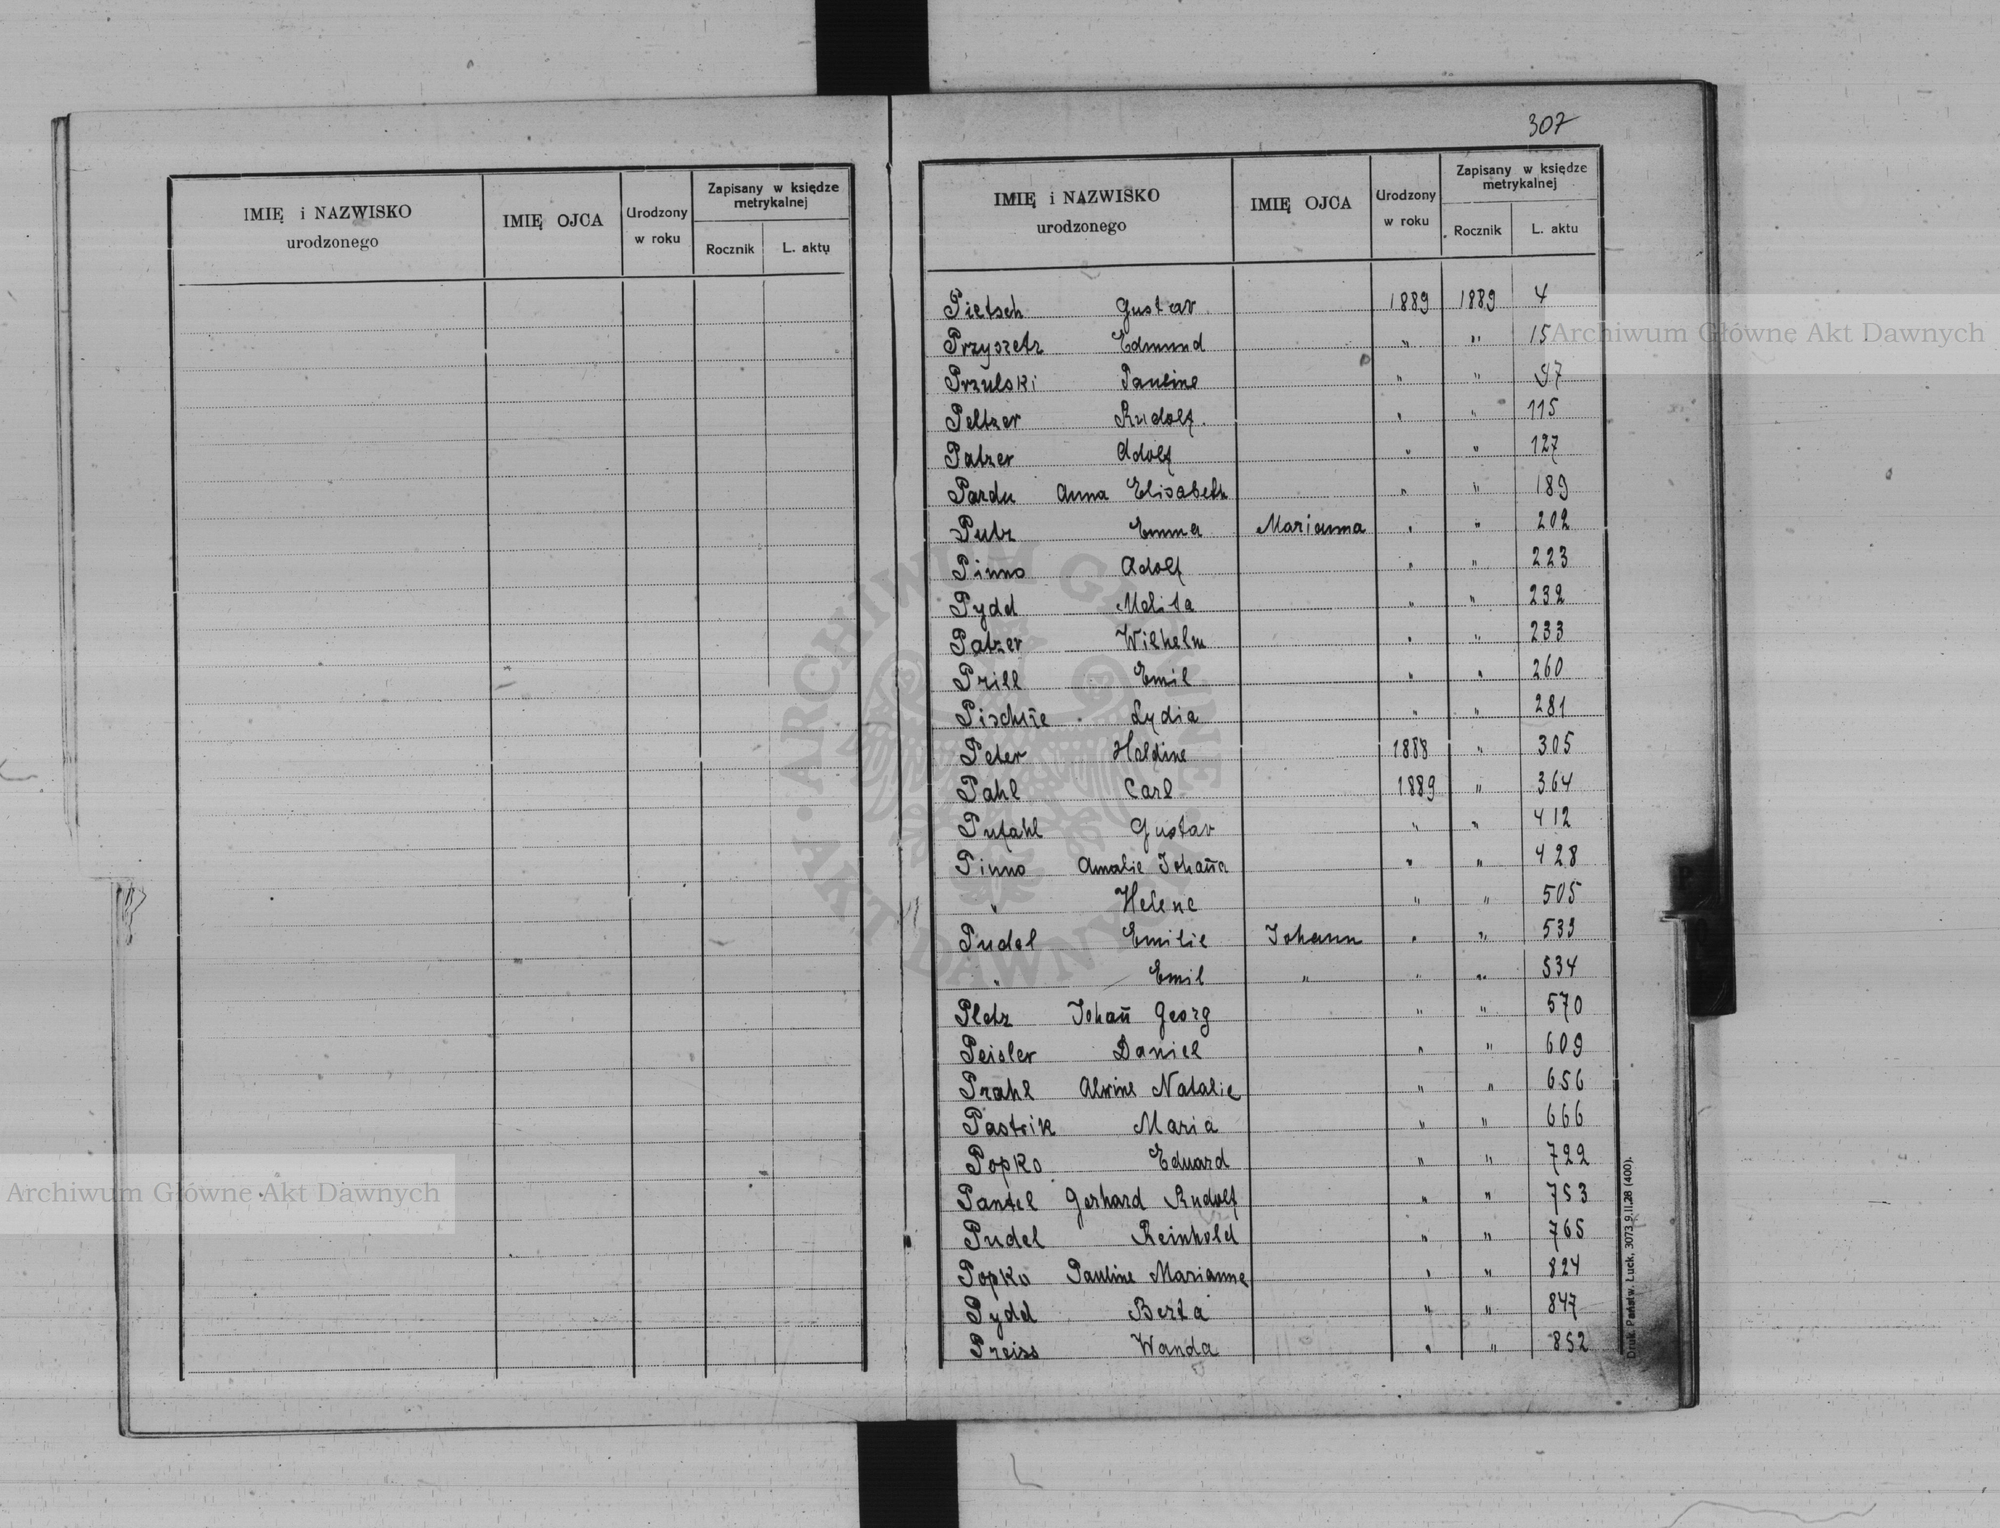 307
IMIĘ i NAZWISKO urodzonego IMIĘ OJCA Urodzony w roku Zapisany w księdze metrykalnej Rocznik L. aktu
IMIĘ i NAZWISKO urodzonego IMIĘ OJCA Urodzony w roku Zapisany w księdze metrykalnej Rocznik L. aktu
Pietsch Gustav 1889 1889 4
Przyszetz Edmund " " 15
Przulski Pauline " " 97
Peltzer Rudolf " " 115
Patzer Adolf " " 127
Pazdu Anna Elisabeth " " 189
Putz Emma Marianna " " 202
Pinno Adolf " " 223
Pydd Melita " " 232
Patzer Wilhelm " " 233
Prill Emil " " 260
Lydia " " 281
Peter 1888 " 305
Pahl Carl 1889 " 364
Putahl Gustav " " 412
Pinno Amalie Johan̄a " " 428
" Helene " " 505
Pudel Emilie Johann " " 533
" Emil " " " 534
Pletz Johan̄ Georg " " 570
Peisler Daniel " " 609
Prahl Alwine Natalie " " 656
Pastrik Maria " " 666
Popko Eduard " " 722
Pantel Gerhard Rudolf " " 753
Pudel Reinhold " " 765
Popko Pauline Marianne " " 824
Pydd Berta " " 847
Preiss Wanda " " 852
Druk. Państw. Łuck, 3073 9.II.28 (400).
Archiwum Główne Akt Dawnych
Archiwum Główne Akt Dawnych
ARCHIWUM GŁÓWNE AKT DAWNYCH